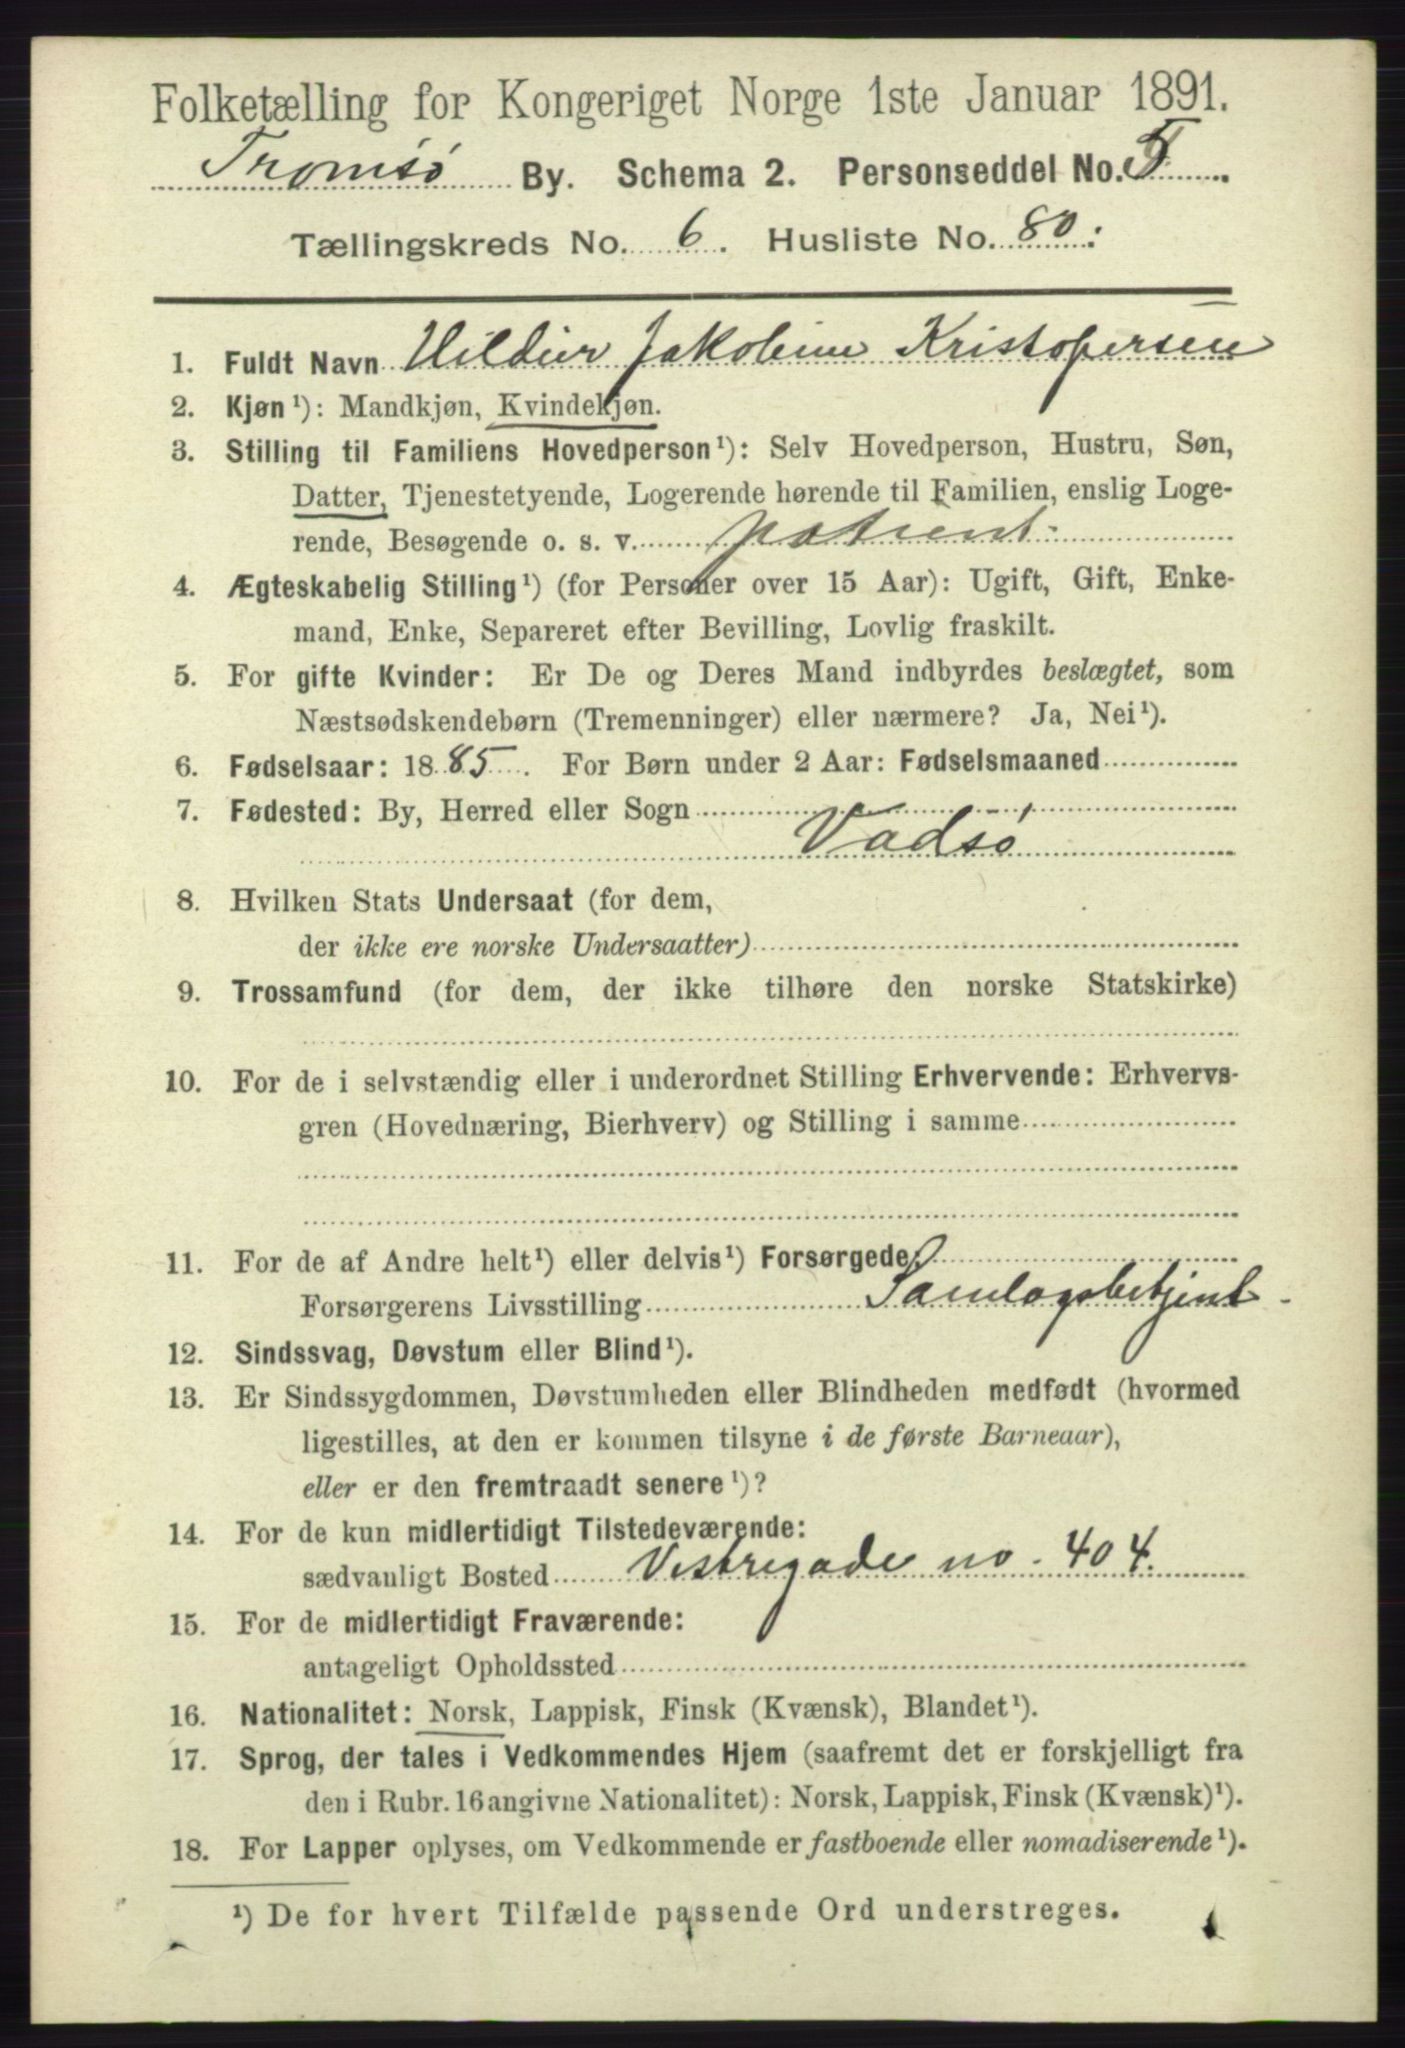 Folketælling for Kongeriget Norge 1ste Januar 1891.
Tromsø By. Schema 2. Personseddel No. 5
Tællingskreds No. 6. Husliste No. 80.
1. Fuldt Navn Hildur Jakobine Kristopersen
2. Kjøn ¹): Mandkjøn, Kvindekjøn.
3. Stilling til Familiens Hovedperson ¹): Selv Hovedperson, Hustru, Søn,
Datter, Tjenestetyende, Logerende hørende til Familien, enslig Loge-
rende, Besøgende o. s. v. patient.
4. Ægteskabelig Stilling ¹) (for Personer over 15 Aar): Ugift, Gift, Enke-
mand, Enke, Separeret efter Bevilling, Lovlig fraskilt.
5. For gifte Kvinder: Er De og Deres Mand indbyrdes beslægtet, som
Næstsødskendebørn (Tremenninger) eller nærmere? Ja, Nei ¹).
6. Fødselsaar: 1885. For Børn under 2 Aar: Fødselsmaaned
7. Fødested: By, Herred eller Sogn
Vadsø
8. Hvilken Stats Undersaat (for dem,
der ikke ere norske Undersaatter)
9. Trossamfund (for dem, der ikke tilhøre den norske Statskirke)
10. For de i selvstændig eller i underordnet Stilling Erhvervende: Erhvervs-
gren (Hovednæring, Bierhverv) og Stilling i samme
11. For de af Andre helt ¹) eller delvis ¹) Forsørgede:
Forsørgerens Livsstilling Samlagsbetjent
12. Sindssvag, Døvstum eller Blind ¹).
13. Er Sindssygdommen, Døvstumheden eller Blindheden medfødt (hvormed
ligestilles, at den er kommen tilsyne i de første Barneaar),
eller er den fremtraadt senere ¹)?
14. For de kun midlertidigt Tilstedeværende:
sædvanligt Bosted Vestregade no. 404.
15. For de midlertidigt Fraværende:
antageligt Opholdssted
16. Nationalitet: Norsk, Lappisk, Finsk (Kvænsk), Blandet ¹).
17. Sprog, der tales i Vedkommendes Hjem (saafremt det er forskjelligt fra
den i Rubr. 16 angivne Nationalitet): Norsk, Lappisk, Finsk (Kvænsk) ¹).
18. For Lapper oplyses, om Vedkommende er fastboende eller nomadiserende ¹).
¹) De for hvert Tilfælde passende Ord understreges.